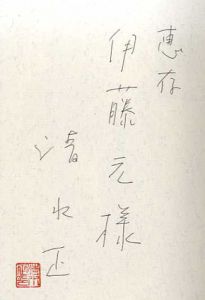 恵存
伊藤元様
清水正